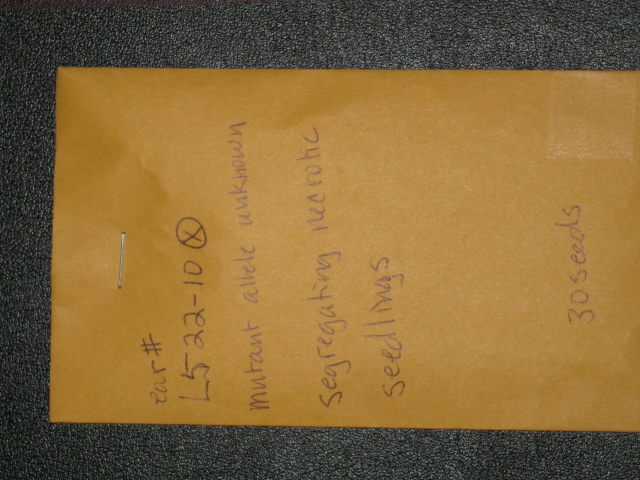 ear#
L522-10 ⓧ
mutant allele unknown
segregating necrotic
seedlings
30 seeds